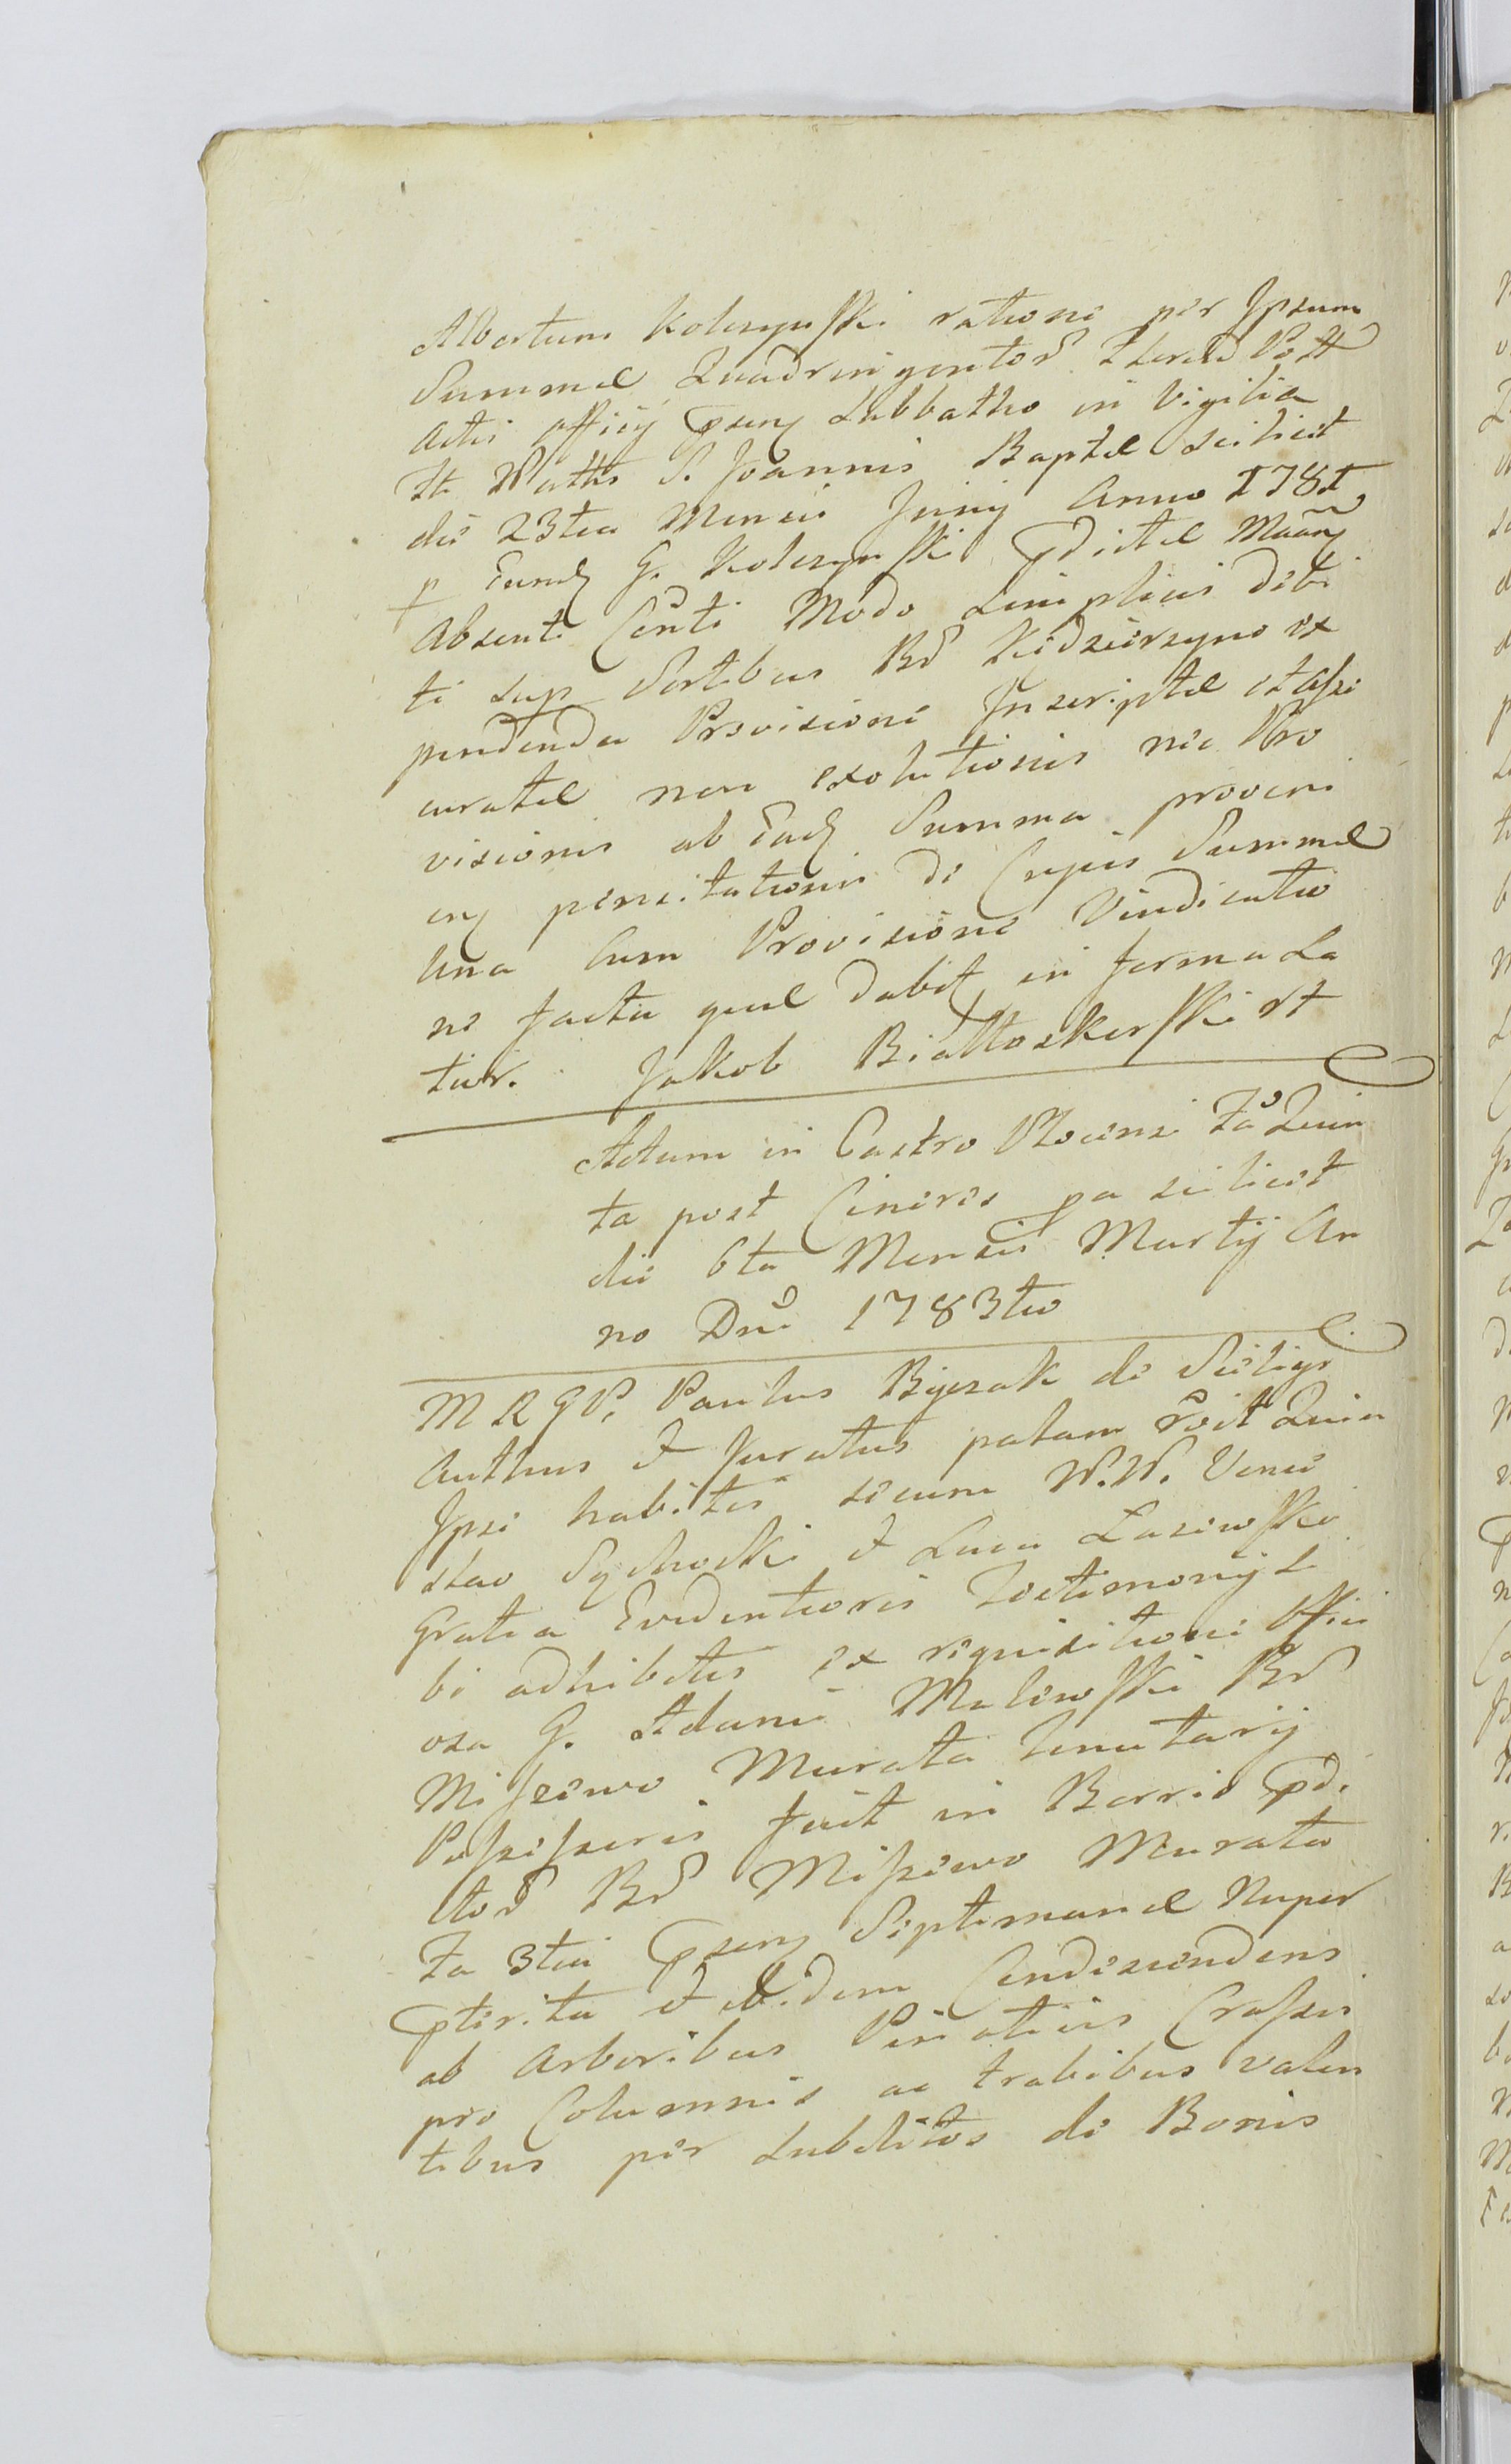 Albertum Kolczynski ratione per Ipsum
Summae Quadringentor. Floren. Polt
Actis officij psenq Sabbatho in Vigilia
Fti Natts S. Joannis Baptae scilicet
die 23tia Mensis Junij Anno 1781
p Eundq G. Kolczynski pdictae
Absenti Modo Simplicis debi
ti sup Sortibus Br Kedzierzyno ex
pendenda Provisione Inscriptae et Asse
curatae non exolutionis nec Pro
visionis ab Eadq Summa proveni
enq pensitationis de Cujus Summae
Una Cum Provisione Vindicatio
ne facta quae dabit in forma La
tior. Jakob Białłoskurski rt
Actum in Castro Plocensi Fa Quin
ta post Cineres pa scilicet
die 6ta Mensis Martij An
no Dni 1783tio
M R G P. Paulus
Authus et Juratus palam roit Quia
Ipse habitis secum N.N. Vence
slao Sychocki et Luca Lasiewski
Gratia Evidentioris Testimonij Si
bi adhibitis ex requisitione Offici
osa G. Adami Malewski Br
Misiewo Murata tenutarij
Possessoris fuit in Bonis pdi
ctor Br Misiewo Murata
Fa 3tia psenq Septimanae Nuper
pterita et Ibidem Condescendens
ab Arboribus Pinaticis Crassis
pro Columnis ac trabibus valen
tibus per Subditos de Bonis